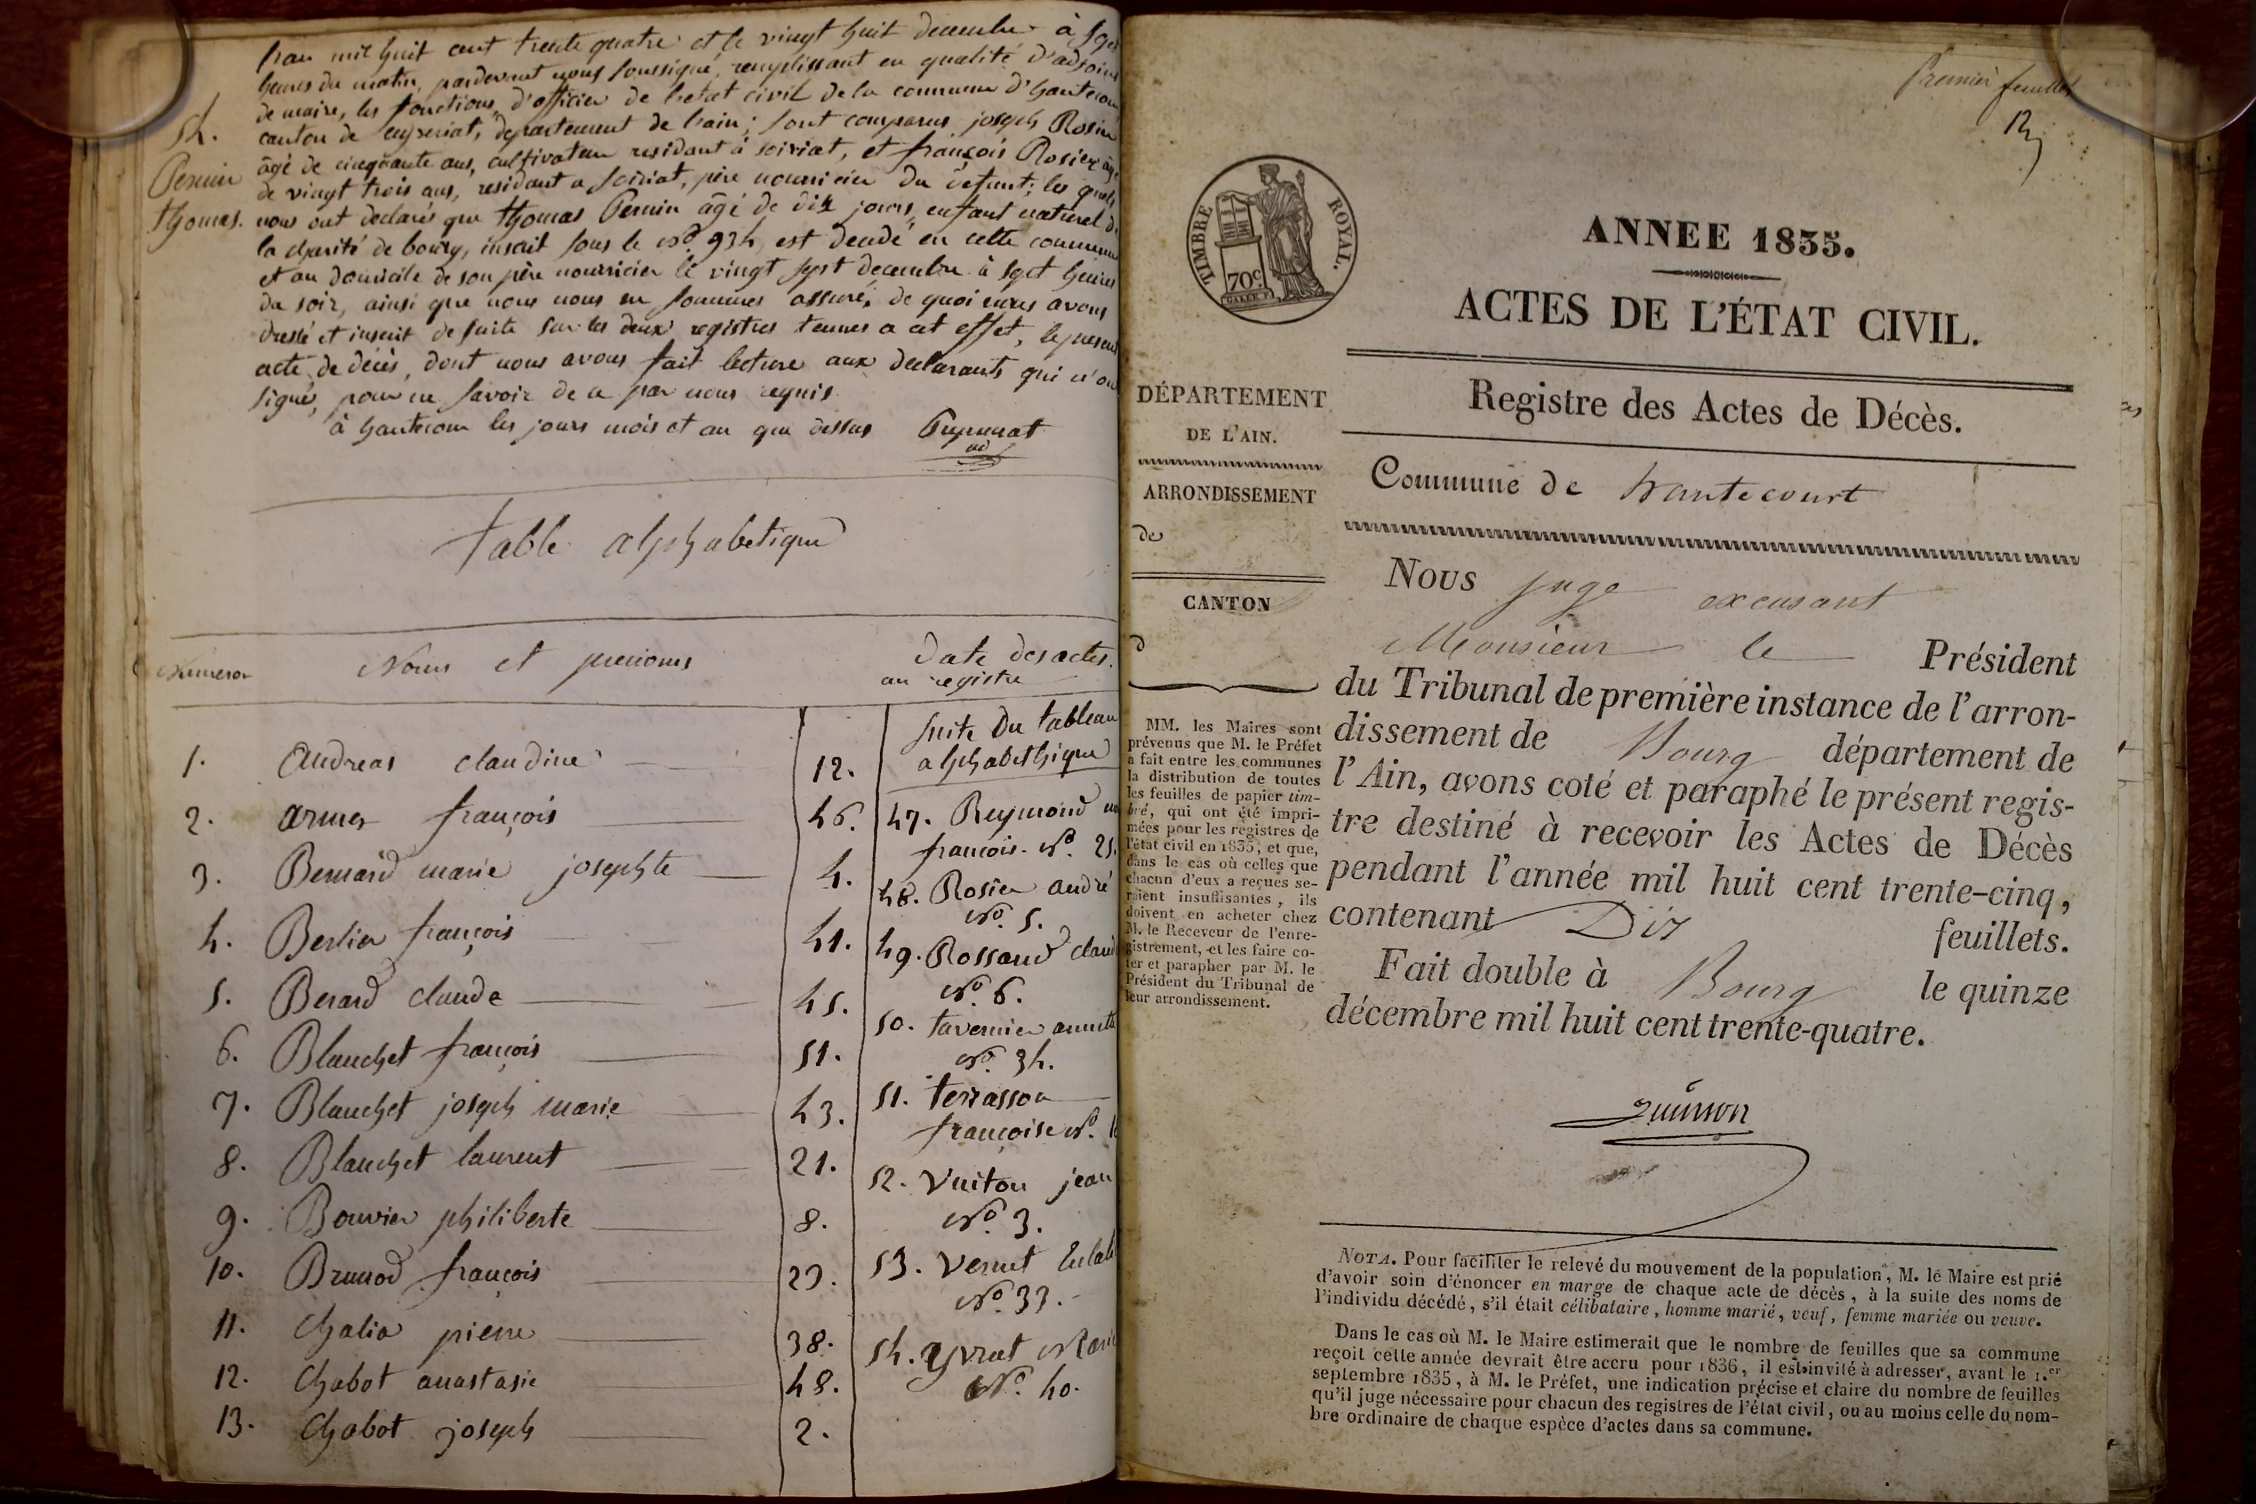 l'an mil huit cent trente quatre et le vingt huit decembre à sept
heures du matin, pardevant nous soussigné, remplissant en qualité d'adjoint
de maire, les fonctions d'officier de letat civil de la commune d'hautecour
canton de ceyzeriat, departement de lain; sont comparus joseph Rosier
âgé de cinquante ans, cultivateur residant à soiriat, et françois Rosier âgé
de vingt trois ans, residant a soiriat, père nourricier du défunt; les quels
nous ont declarés que thomas Perrin âgé de dix jours, enfant naturel de
la charité de bourg, inscrit sous le No. 934, est decedé en cette commune
et au domicile de son père nourricier le vingt sept decembre à sept heures
du soir, ainsi que nous nous en sommes assuré, de quoi nous avons
dressé et inscrit de suite sur les deux registres tenues a cet effet, le present
acte de décès, dont nous avons fait lecture aux declarants qui n'ont
signé, pour ne savoir de ce par nous requis
à hautecour les jours mois et an que dessus
ad
54.
Perrin
thomas.
table alphabetique
Numeros
Noms et prenoms
Date des actes.
au registre
1. Andreas claudine 12.
2. armes françois 46.
3. Bernard marie josephte 4.
4. Berlier françois 41.
5. Berard claude 45.
6. Blanchet françois 51.
7. Blanchet joseph marie 43.
8. Blanchet laurent 21.
9. Bouvier philiberte 8.
10. Brunod françois 23.
11. Chalia pierre 38.
12. Chabot anastasie 48.
13. Chabot joseph 2.
suite du tableau
alphabethique
47. Reymond
françois No. 25.
48. Rosier andré
No. 5.
49. Rossand claud
No. 6.
50. tavernier annette
No. 34.
51. terrasson
françoise No.
52. Vuiton jean
No. 3.
53. Veruet
No. 33.
54. Yvrat Marie
No. 40.
Premier feuillet
TIMBRE ROYAL.
70c.
ANNEE 1835.
ACTES DE L'ÉTAT CIVIL.
Registre des Actes de Décès.
Commune de hautecourt
DÉPARTEMENT
DE L'AIN.
ARRONDISSEMENT
de
CANTON
d
MM. les Maires sont
prévenus que M. le Préfet
a fait entre les communes
la distribution de toutes
les feuilles de papier tim-
bré, qui ont été impri-
mées pour les registres de
l'état civil en 1835, et que,
dans le cas où celles que
chacun d'eux a reçues se-
raient insuffisantes, ils
doivent en acheter chez
M. le Receveur de l'enre-
gistrement, et les faire co-
ter et parapher par M. le
Président du Tribunal de
leur arrondissement.
Nous juge excusant
Monsieur le Président
du Tribunal de première instance de l'arron-
dissement de Bourg département de
l'Ain, avons coté et paraphé le présent regis-
tre destiné à recevoir les Actes de Décès
pendant l'année mil huit cent trente-cinq,
contenant Dix feuillets.
Fait double à Bourg le quinze
décembre mil huit cent trente-quatre.
NOTA. Pour faciliter le relevé du mouvement de la population, M. le Maire est prié
d'avoir soin d'énoncer en marge de chaque acte de décès, à la suite des noms de
l'individu décédé, s'il était célibataire, homme marié, veuf, femme mariée ou veuve.
Dans le cas où M. le Maire estimerait que le nombre de feuilles que sa commune
reçoit cette année devrait être accru pour 1836, il est invité à adresser, avant le 1.er
septembre 1835, à M. le Préfet, une indication précise et claire du nombre de feuilles
qu'il juge nécessaire pour chacun des registres de l'état civil, ou au moins celle du nom-
bre ordinaire de chaque espèce d'actes dans sa commune.